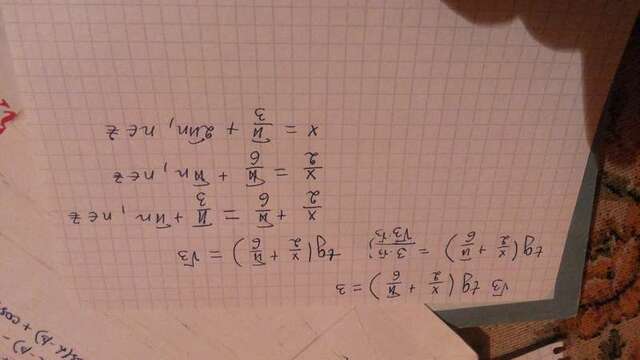 √3 tg(x/2 + π/6) = 3
tg(x/2 + π/6) = 3·√3/√3·√3; tg(x/2 + π/6) = √3
x/2 + π/6 = π/3 + πn, n∈z
x/2 = π/6 + πn, n∈z
x = π/3 + 2πn, n∈z